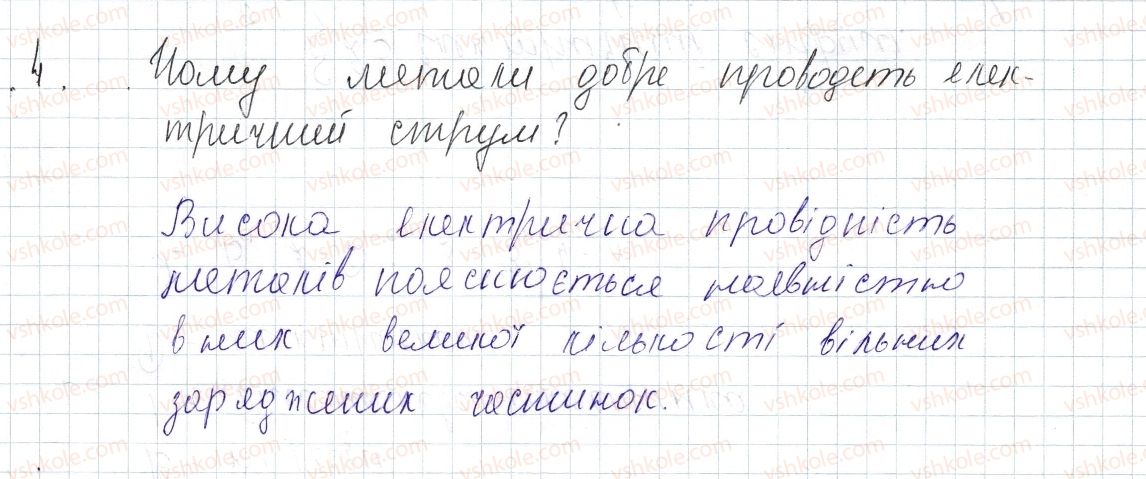 4. Чому метали добре проводеть елек-
тричний струм?
Висока електрична провідність
металів пояснюється наявністю
в них великої кількості вільних
заряджених частинок.